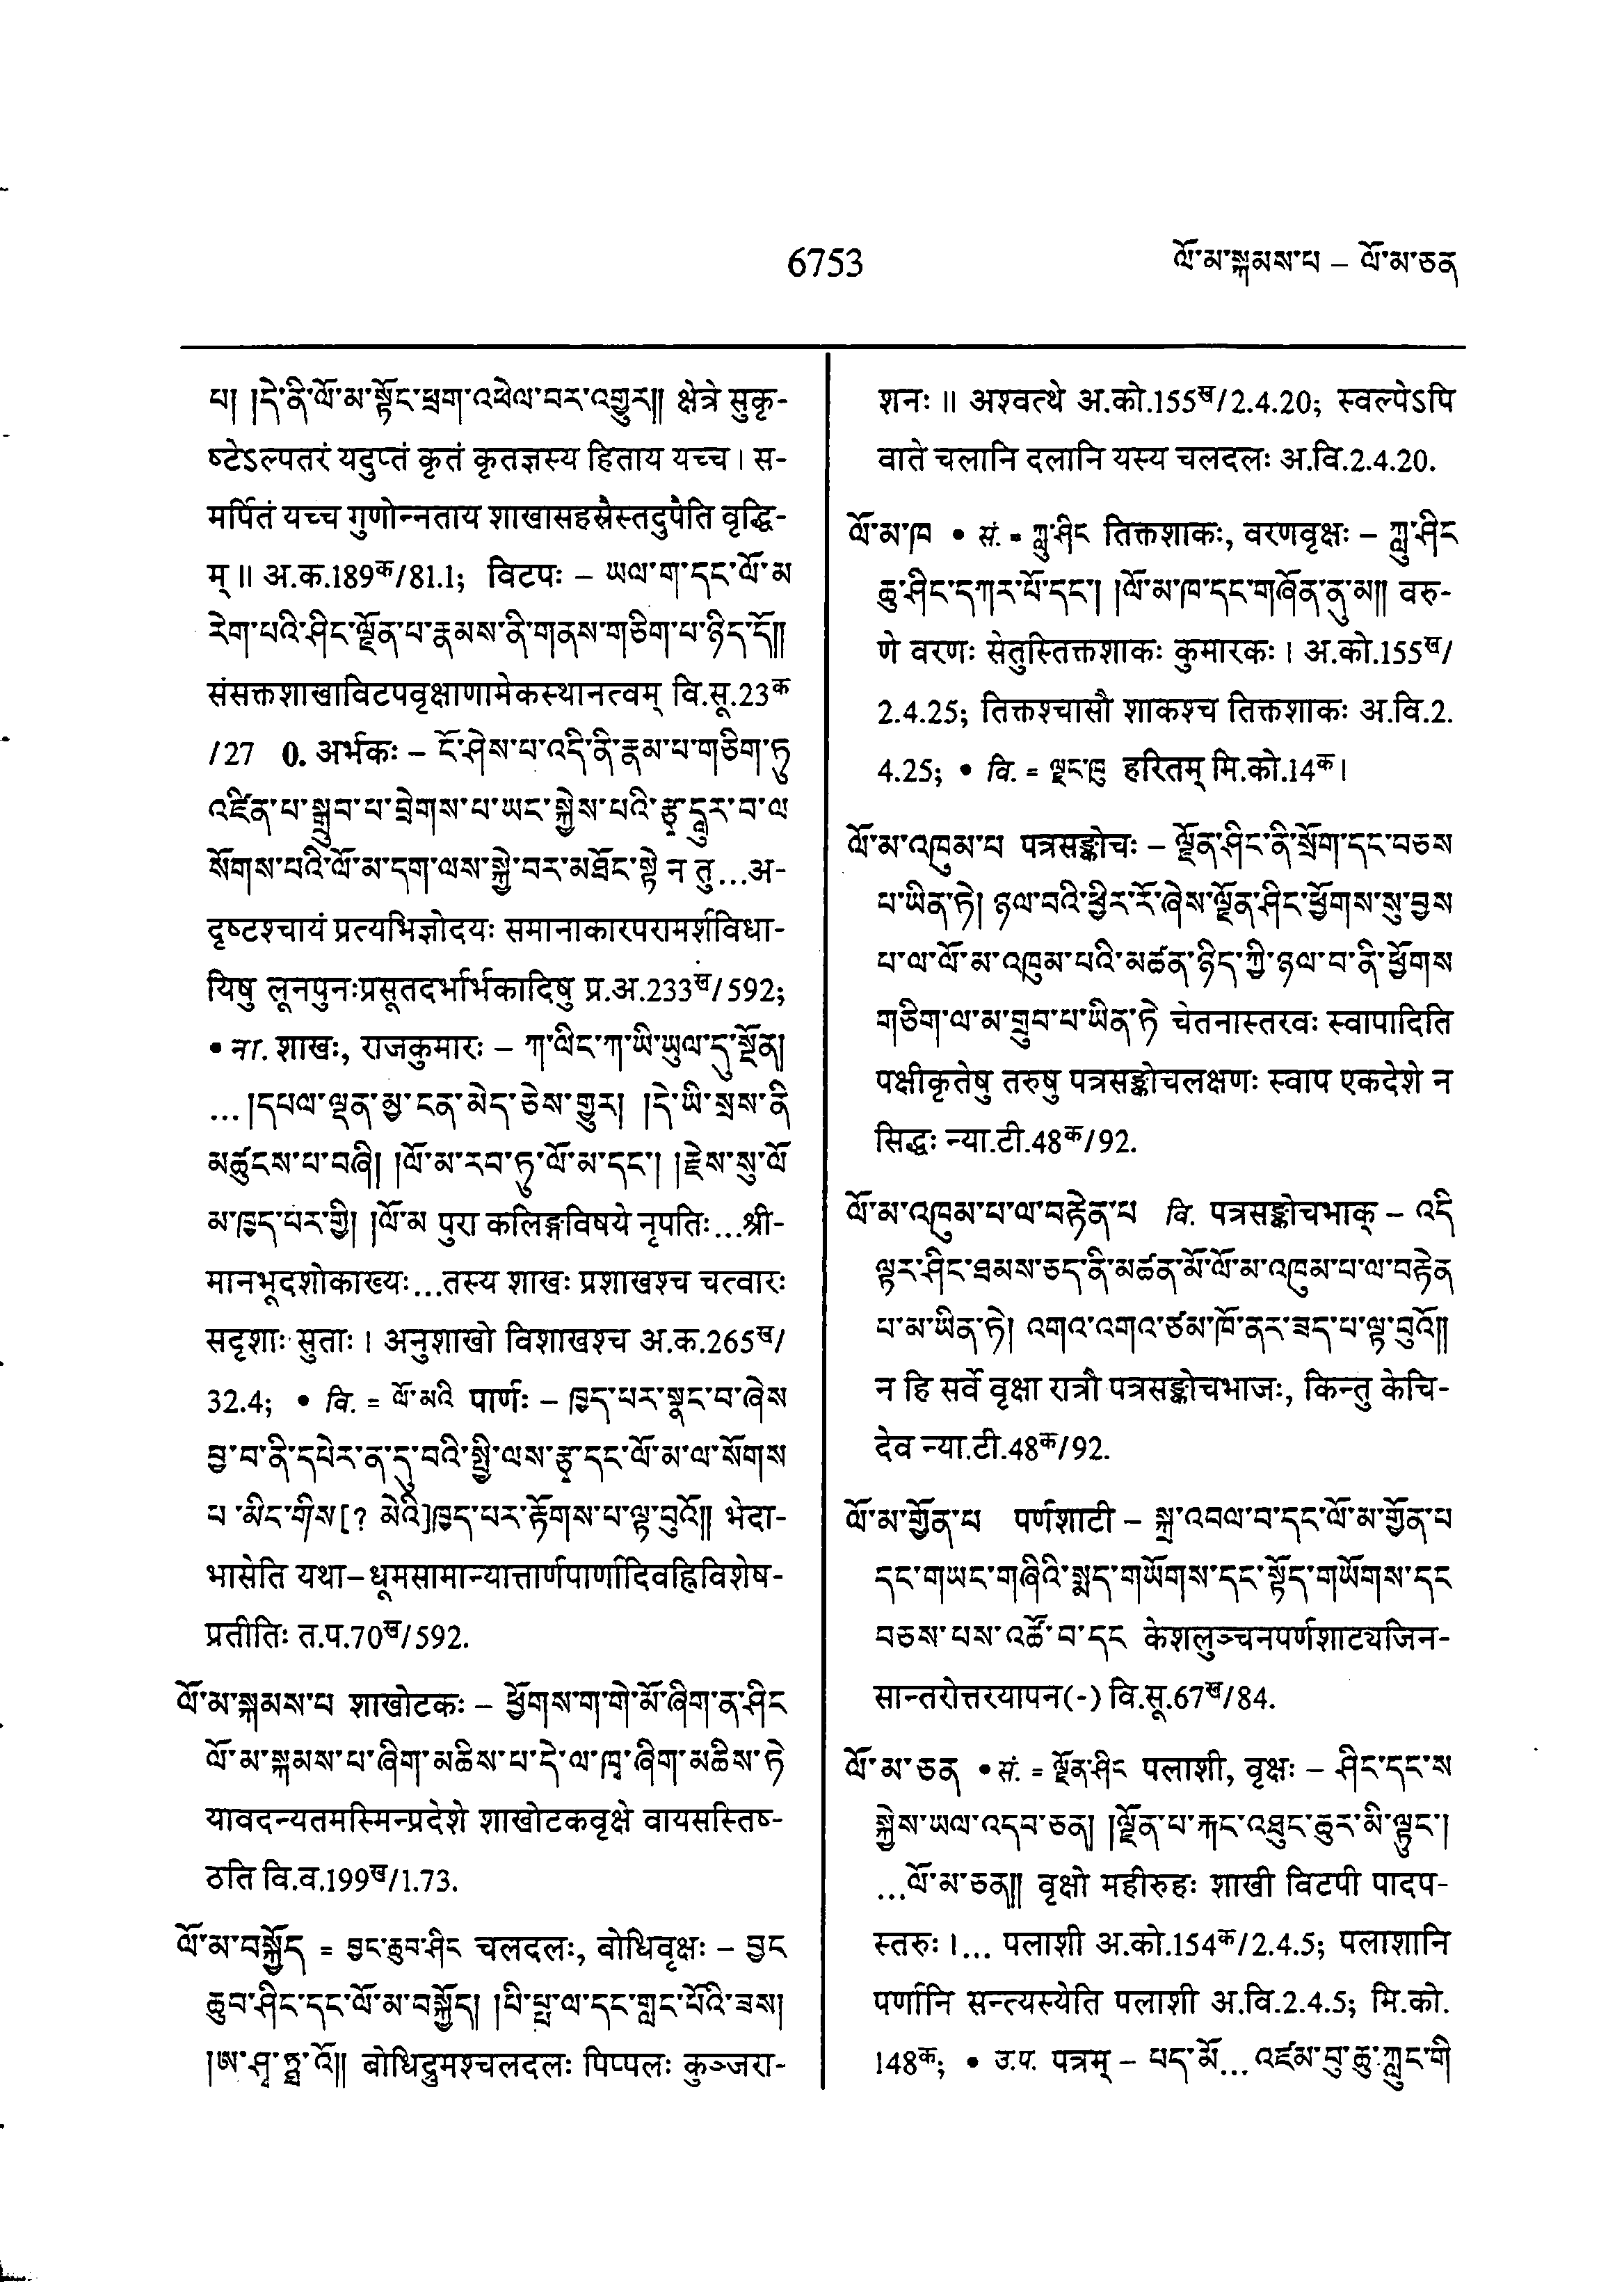 6753
ལོ་མ་སྐམས་པ – ལོ་མ་ཅན
པ། །དེ་ནི་ལོ་མ་སྟོང་ཕྲག་འཕེལ་བར་འགྱུར།། क्षेत्रे सुकृ-
ष्टेऽल्पतरं यदुप्तं कृतं कृतज्ञस्य हिताय यच्च । स-
मर्पितं यच्च गुणोन्नताय शाखासहस्रैस्तदुपैति वृद्धि-
म् ॥ अ.क.189क/81.1; विटपः – ཡལ་ག་དང་ལོ་མ
རེག་པའི་ཤིང་ལྗོན་པ་རྣམས་ནི་གནས་གཅིག་པ་ཉིད་དོ།།
संसक्तशाखाविटपवृक्षाणामेकस्थानत्वम् वि.सू.23क
/27 0. अर्भकः – ངོ་ཤེས་པ་འདི་ནི་རྣམ་པ་གཅིག་ཏུ
འཛིན་པ་སྒྲུབ་པ་བྲེགས་པ་ཡང་སྐྱེས་པའི་རྩྭ་དཱུར་བ་ལ
སོགས་པའི་ལོ་མ་དག་ལས་སྐྱེ་བར་མཐོང་སྟེ न तु...अ-
दृष्टश्चायं प्रत्यभिज्ञोदयः समानाकारपरामर्शविधा-
यिषु लूनपुनःप्रसूतदर्भार्भकादिषु प्र.अ.233ख/592;
• ना. शाखः, राजकुमारः – ཀ་ལིང་ཀ་ཡི་ཡུལ་དུ་སྔོན།
... །དཔལ་ལྡན་མྱ་ངན་མེད་ཅེས་གྱུར། །དེ་ཡི་སྲས་ནི
མཚུངས་པ་བཞི། །ལོ་མ་རབ་ཏུ་ལོ་མ་དང་། །རྗེས་སུ་ལོ
མ་ཁྱད་པར་གྱི། །ལོ་མ पुरा कलिङ्गविषये नृपतिः...श्री-
मानभूदशोकाख्यः...तस्य शाखः प्रशाखश्च चत्वारः
सदृशाः सुताः । अनुशाखो विशाखश्च अ.क.265ख/
32.4; • वि. = ལོ་མའི पार्णः – ཁྱད་པར་སྣང་བ་ཞེས
བྱ་བ་ནི་དཔེར་ན་དུ་བའི་སྤྱི་ལས་རྩྭ་དང་ལོ་མ་ལ་སོགས
པ་མིང་གིས[? མེའི]ཁྱད་པར་རྟོགས་པ་ལྟ་བུའོ།། भेदा-
भासेति यथा–धूमसामान्यात्तार्णपार्णादिवह्निविशेष-
प्रतीतिः त.प.70ख/592.
ལོ་མ་སྐམས་པ शाखोटकः – ཕྱོགས་ག་གེ་མོ་ཞིག་ན་ཤིང
ལོ་མ་སྐམས་པ་ཞིག་མཆིས་པ་དེ་ལ་ཁྭ་ཞིག་མཆིས་ཏེ
यावदन्यतमस्मिन्प्रदेशे शाखोटकवृक्षे वायसस्तिष्-
ठति वि.व.199ख/1.73.
ལོ་མ་བསྐྱོད = བྱང་ཆུབ་ཤིང चलदलः, बोधिवृक्षः – བྱང
ཆུབ་ཤིང་དང་ལོ་མ་བསྐྱོད། །པི་པྤ་ལ་དང་གླང་པོའི་ཟས།
།ཨ་ཤྭ་ཏྠ་འོ།། बोधिद्रुमश्चलदलः पिप्पलः कुञ्जरा-
शनः ॥ अश्वत्थे अ.को.155ख/2.4.20; स्वल्पेऽपि
वाते चलानि दलानि यस्य चलदलः अ.वि.2.4.20.
ལོ་མ་ཁ • सं. = ཀླུ་ཤིང तिक्तशाकः, वरणवृक्षः – ཀླུ་ཤིང
ཆུ་ཤིང་དཀར་པོ་དང་། །ལོ་མ་ཁ་དང་གཞོན་ནུ་མ།། वरु-
णे वरणः सेतुस्तिक्तशाकः कुमारकः । अ.को.155ख/
2.4.25; तिक्तश्चासौ शाकश्च तिक्तशाकः अ.वि.2.
4.25; • वि. = ལྗང་ཁུ हरितम् मि.को.14क ।
ལོ་མ་འཁུམ་པ पत्रसङ्कोचः – ལྗོན་ཤིང་ནི་སྲོག་དང་བཅས
པ་ཡིན་ཏེ། ཉལ་བའི་ཕྱིར་རོ་ཞེས་ལྗོན་ཤིང་ཕྱོགས་སུ་བྱས
པ་ལ་ལོ་མ་འཁུམ་པའི་མཚན་ཉིད་ཀྱི་ཉལ་བ་ནི་ཕྱོགས
གཅིག་ལ་མ་གྲུབ་པ་ཡིན་ཏེ चेतनास्तरवः स्वापादिति
पक्षीकृतेषु तरुषु पत्रसङ्कोचलक्षणः स्वाप एकदेशे न
सिद्धः न्या.टी.48क/92.
ལོ་མ་འཁུམ་པ་ལ་བརྟེན་པ वि. पत्रसङ्कोचभाक् – འདི
ལྟར་ཤིང་ཐམས་ཅད་ནི་མཚན་མོ་ལོ་མ་འཁུམ་པ་ལ་བརྟེན
པ་མ་ཡིན་ཏེ། འགའ་འགའ་ཙམ་ཁོ་ནར་ཟད་པ་ལྟ་བུའོ།།
न हि सर्वे वृक्षा रात्रौ पत्रसङ्कोचभाजः, किन्तु केचि-
देव न्या.टी.48क/92.
ལོ་མ་གྱོན་པ पर्णशाटी – སྐྲ་འབལ་བ་དང་ལོ་མ་གྱོན་པ
དང་གཡང་གཞིའི་སྨད་གཡོགས་དང་སྟོད་གཡོགས་དང
བཅས་པས་འཚོ་བ་དང केशलुञ्चनपर्णशाट्यजिन-
सान्तरोत्तरयापन(-) वि.सू.67ख/84.
ལོ་མ་ཅན • सं. = ལྗོན་ཤིང पलाशी, वृक्षः – ཤིང་དང་ས
སྐྱེས་ཡལ་འདབ་ཅན། །ལྗོན་པ་རྐང་འཐུང་ཆུར་མི་ལྟུང་།
...ལོ་མ་ཅན།། वृक्षो महीरुहः शाखी विटपी पादप-
स्तरुः ।... पलाशी अ.को.154क/2.4.5; पलाशानि
पर्णानि सन्त्यस्येति पलाशी अ.वि.2.4.5; मि.को.
148क; • उ.प. पत्रम् – པད་མོ... འཛམ་བུ་ཆུ་ཀླུང་གི